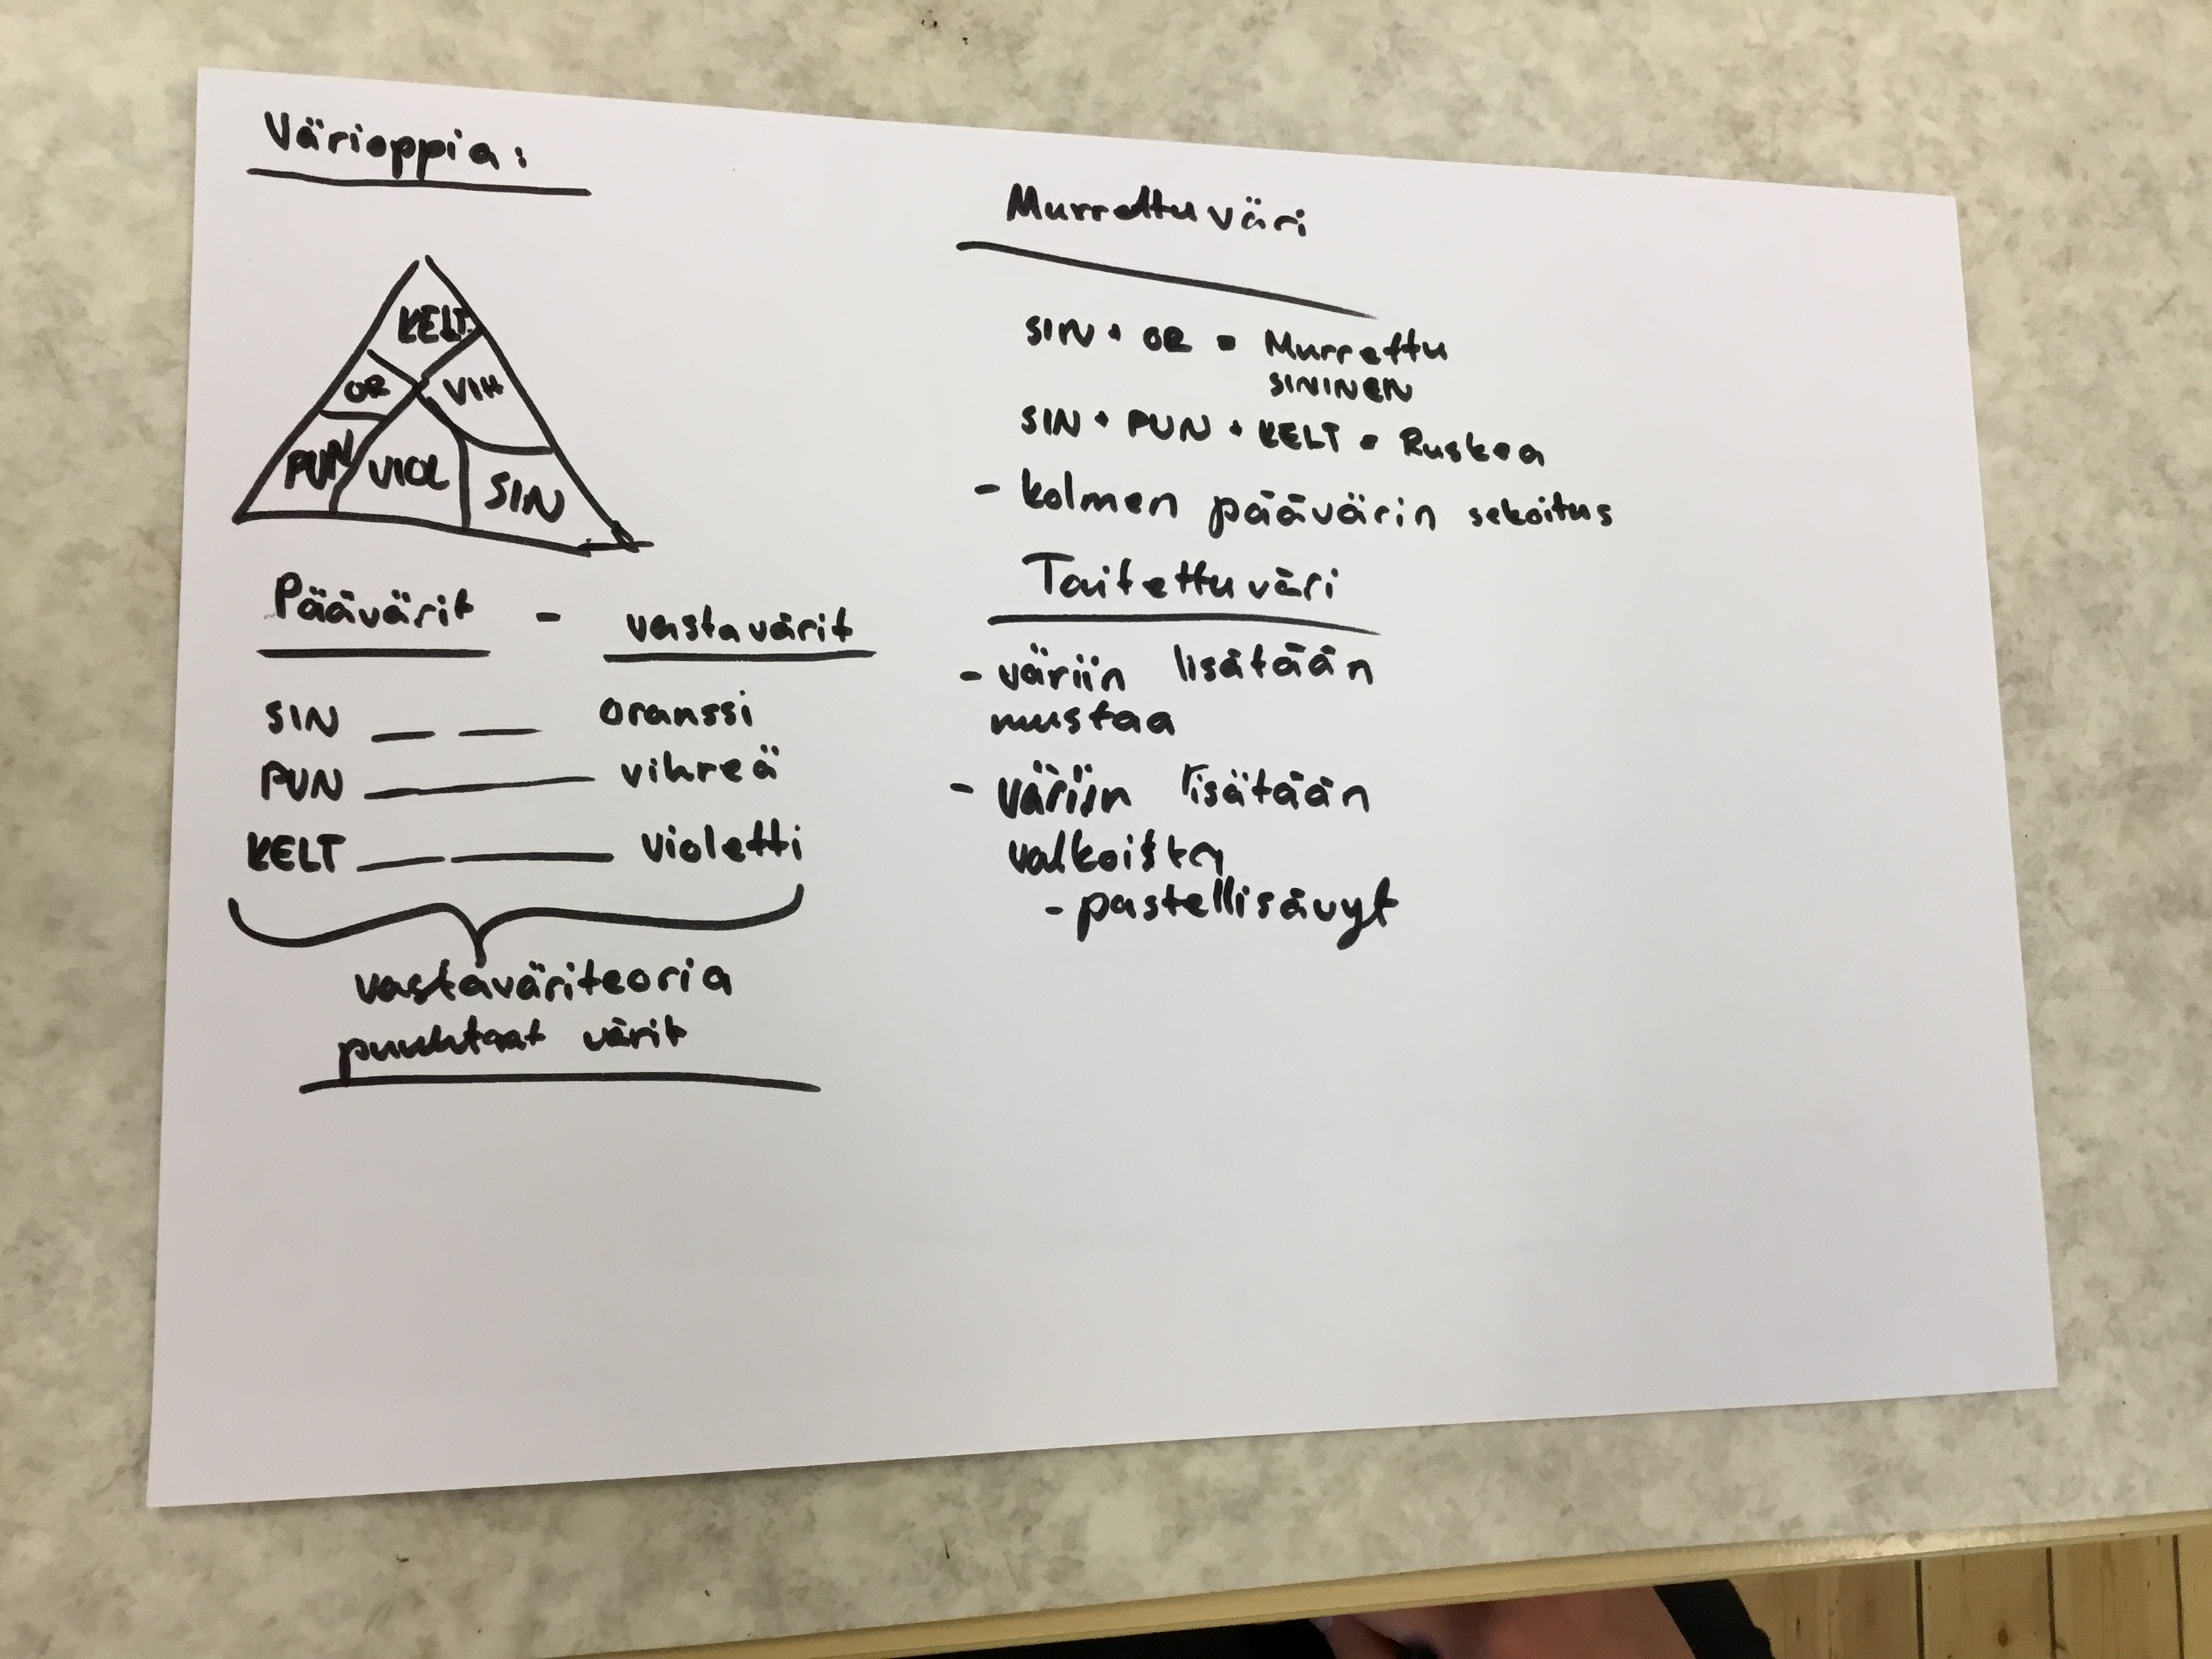 Värioppia:
KELT.
OR VIH
PUN VIOL SIN
Päävärit - vastavärit
SIN — — oranssi
PUN — vihreä
KELT — — violetti
vastaväriteoria
puuhtaat värit
Murrettu väri
SIN + OR = Murrettu
SININEN
SIN + PUN + KELT = Ruskea
- kolmen päävärin sekoitus
Taitettu väri
- väriin lisätään
mustaa
- väriin lisätään
valkoista
- pastellisävyt